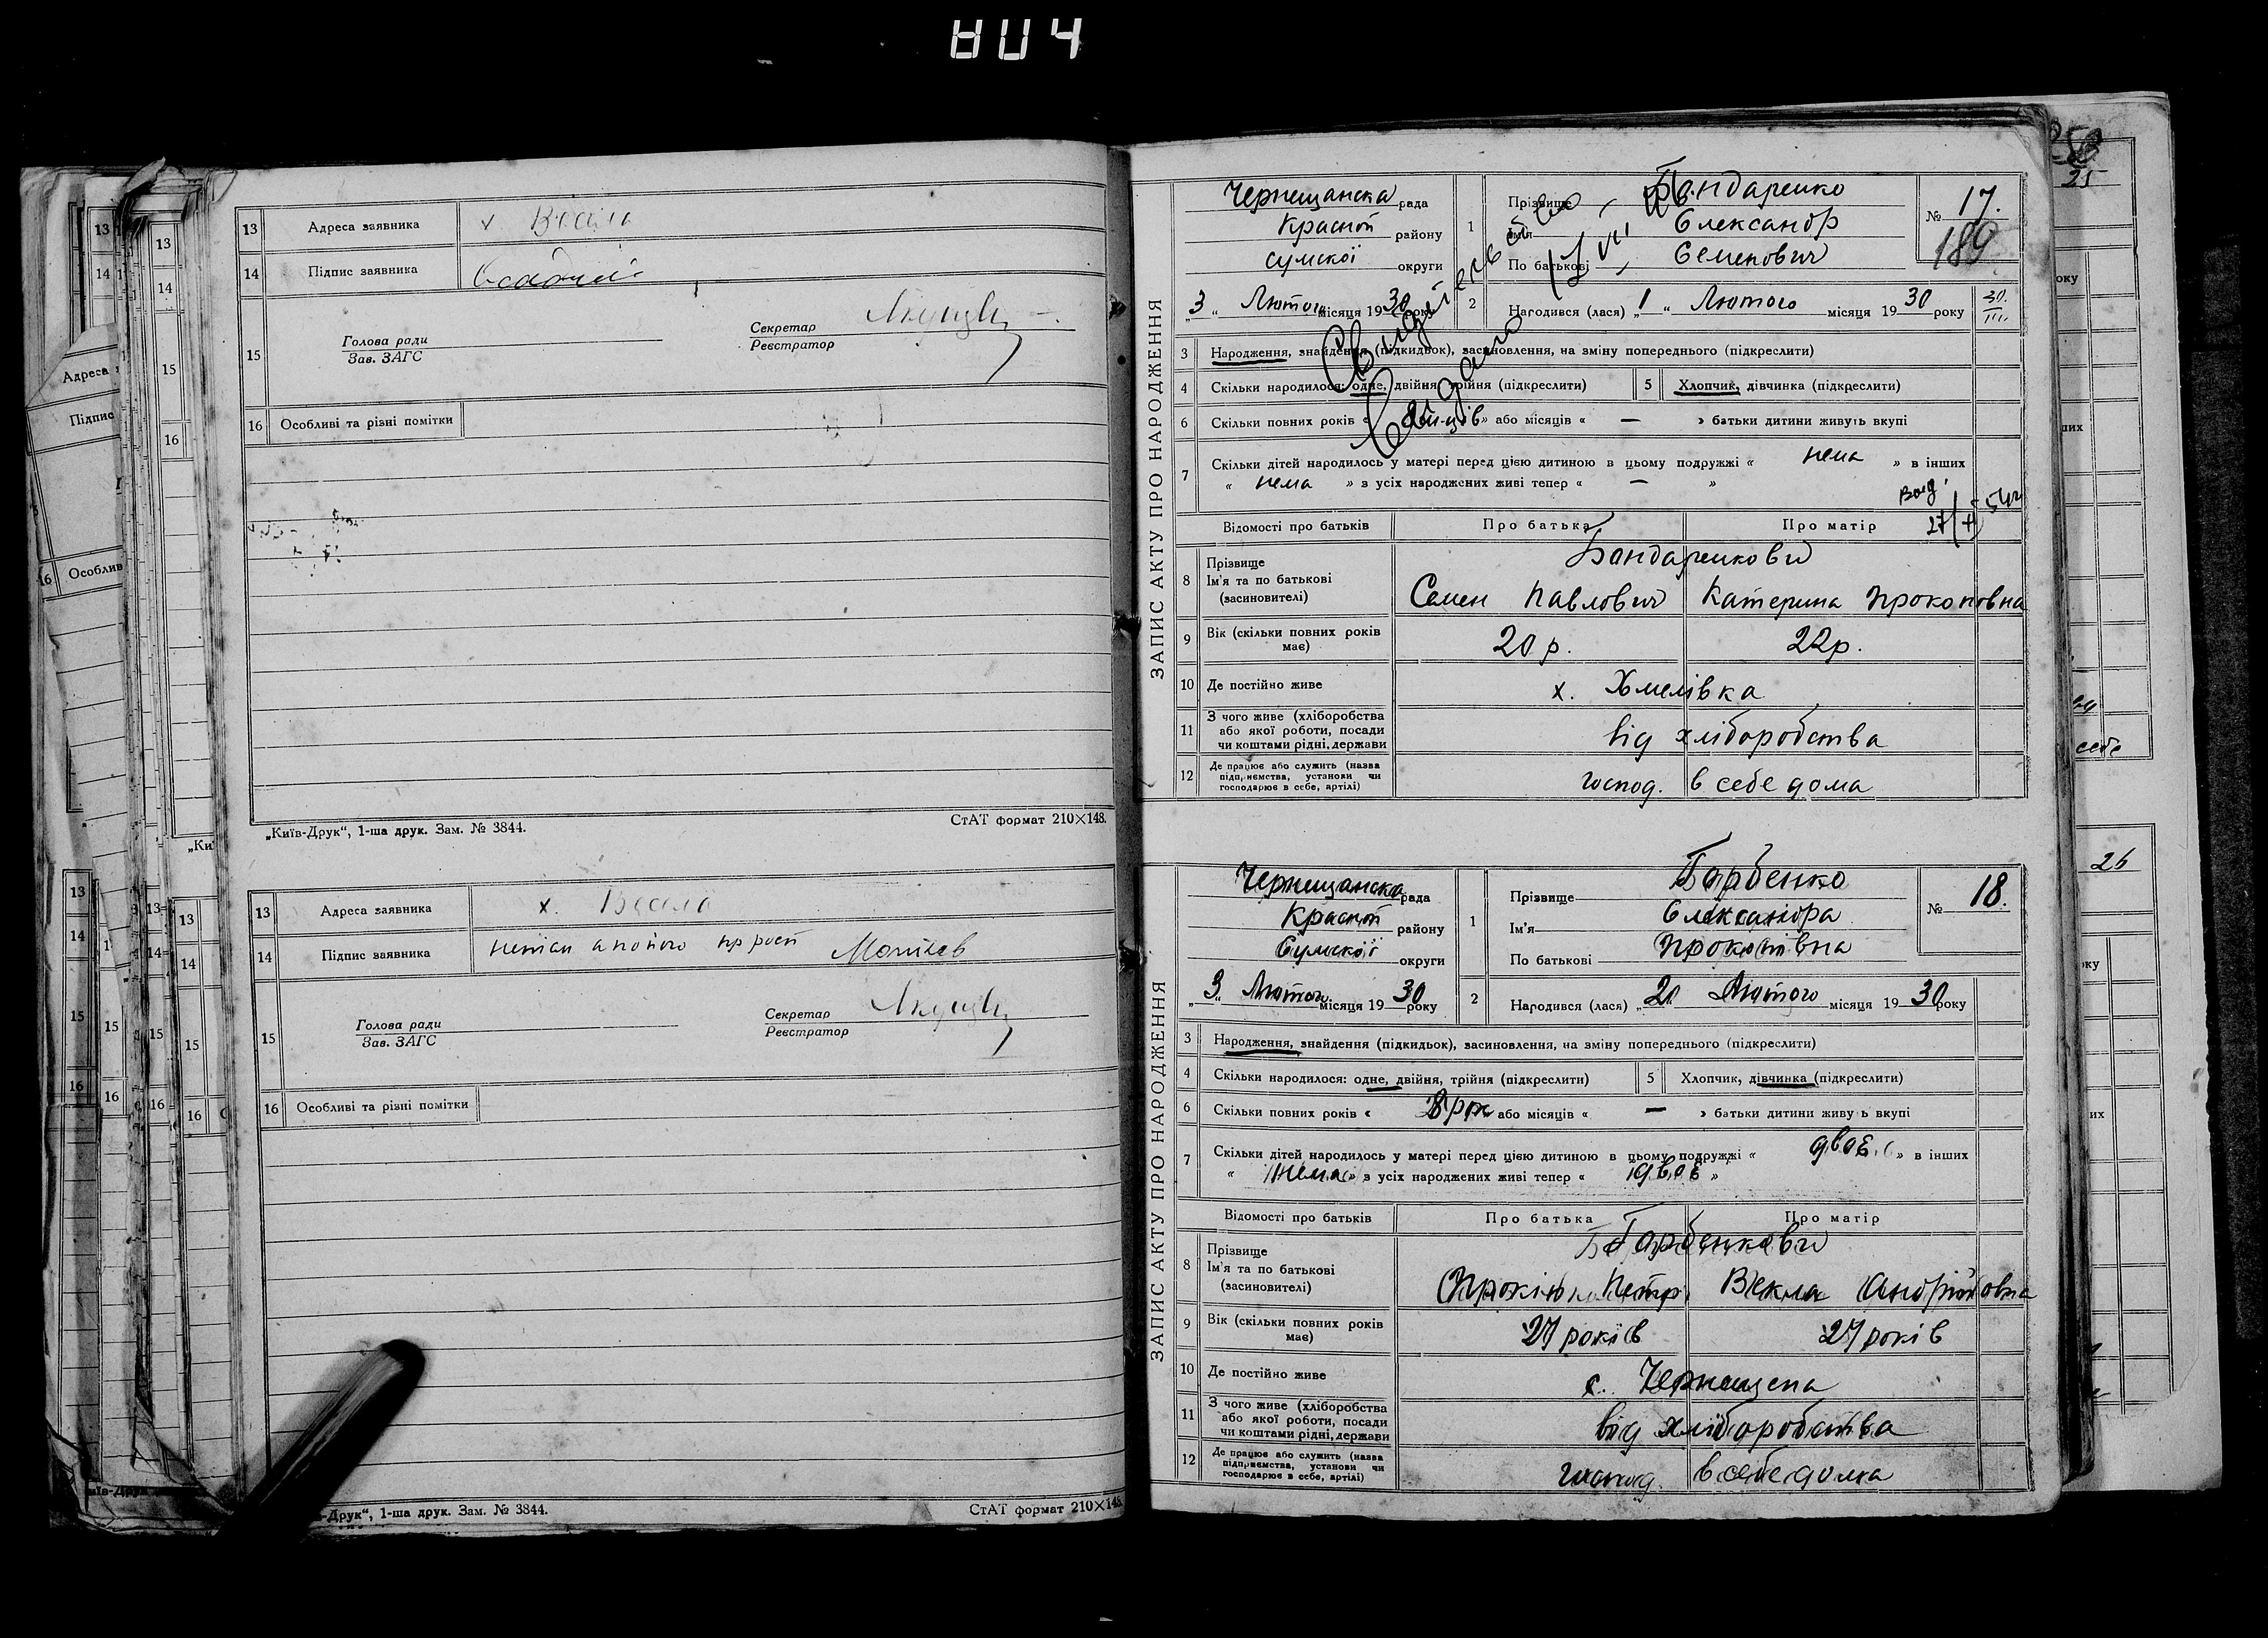 13 Адреса заявника х Весела
14 Підпис заявника
15 Голова ради
Зав. ЗАГС
Секретар
Реєстратор
16 Особливі та різні помітки
„Київ-Друк“, 1-ша друк. Зам. № 3844.
СтАТ формат 210×148.
13 Адреса заявника х. Весела
14 Підпис заявника
15 Голова ради
Зав. ЗАГС
Секретар
Реєстратор
16 Особливі та різні помітки
-Друк“, 1-ша друк. Зам. № 3844.
СтАТ формат 210×148.
ЗАПИС АКТУ ПРО НАРОДЖЕННЯ
Чернещанска рада
Красноп району
сумскої округи
„3“ Лютого місяця 1930 року
1 Прізвище Бондаренко
Ім'я Олександр
По батькові Семенович
№ 17.
189
2 Народився (лася) „1“ Лютого місяця 1930 року
30.
III
Свидетельство
Выдано
3 Народження, знайдення (підкидьок), засиновлення, на зміну попереднього (підкреслити)
4 Скільки народилося: одне, двійня, трійня (підкреслити)
5 Хлопчик, дівчинка (підкреслити)
6 Скільки повних років « » або місяців « — » батьки дитини живуть вкупі
7 Скільки дітей народилось у матері перед цією дитиною в цьому подружжі « нема » в інших
« нема » з усіх народжених живі тепер « — »
Відомості про батьків Про батька Про матір
8 Прізвище
Ім'я та по батькові
(засиновителі)
Бондаренкови
Семен Павлович Катерина Прокоповна
9 Вік (скільки повних років має) 20 р. 22 р.
10 Де постійно живе х. Хмелівка
11 З чого живе (хліборобства або якої роботи, посади чи коштами рідні, держави від хліборобства
12 Де працює або служить (назва підприємства, установи чи господарює в себе, артілі) господ. в себе дома
ЗАПИС АКТУ ПРО НАРОДЖЕННЯ
Чернещанска рада
Красноп району
Сумскої округи
„3“ Лютого місяця 1930 року
1 Прізвище Гарбенко
Ім'я Олександра
По батькові Прокопівна
№ 18.
2 Народився (лася) Лютого місяця 1930 року
3 Народження, знайдення (підкидьок), засиновлення, на зміну попереднього (підкреслити)
4 Скільки народилося: одне, двійня, трійня (підкреслити)
5 Хлопчик, дівчинка (підкреслити)
6 Скільки повних років « 8 рок або місяців « — » батьки дитини живу ь вкупі
7 Скільки дітей народилось у матері перед цією дитиною в цьому подружжі « двоє » в інших
« нема » з усіх народжених живі тепер « двоє »
Відомості про батьків Про батька Про матір
8 Прізвище
Ім'я та по батькові
(засиновителі)
Гарбенкови
Векла Андрійовна
9 Вік (скільки повних років має) 27 років 27 років
10 Де постійно живе с. Чернещена
11 З чого живе (хліборобства або якої роботи, посади чи коштами рідні, держави від хліборобства
12 Де працює або служить (назва підприємства, установи чи господарює в себе, артілі) господ. в себе дома